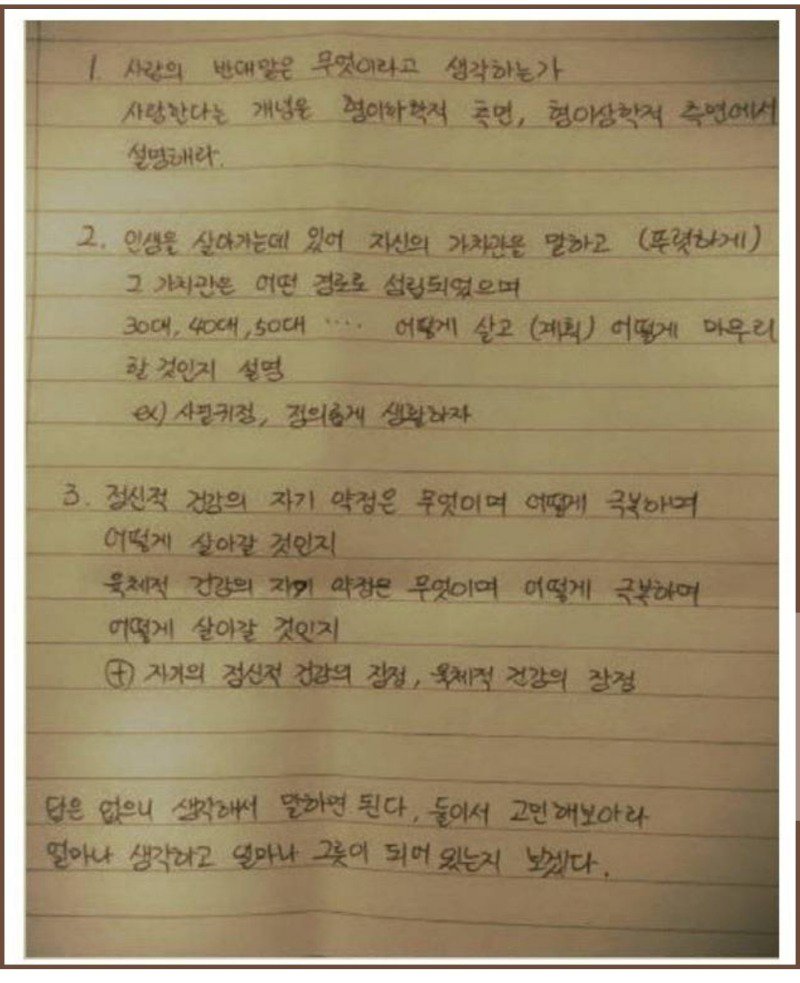 1. 사랑의 반대말은 무엇이라고 생각하는가
사랑한다는 개념을 형이하학적 측면, 형이상학적 측면에서
설명해라.
2. 인생을 살아가는데 있어 자신의 가치관을 말하고 (뚜렷하게)
그 가치관은 어떤 경로로 성립되었으며
30대, 40대, 50대 .... 어떻게 살고 (계획) 어떻게 마무리
할 것인지 설명
ex) 사필귀정, 정의롭게 생활하자
3. 정신적 건강의 자기 약점은 무엇이며 어떻게 극복하며
어떻게 살아갈 것인지
육체적 건강의 자기 약점은 무엇이며 어떻게 극복하며
어떻게 살아갈 것인지
⊕ 자기의 정신적 건강의 장점, 육체적 건강의 장점
답은 없으니 생각해서 말하면 된다, 둘이서 고민해보아라
얼마나 생각하고 얼마나 그릇이 되어 있는지 보겠다.